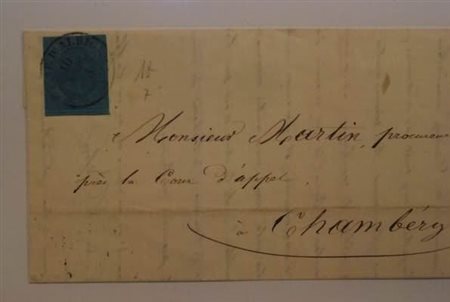 à Monsieur Martin, procureur
près la Cour d'appel
à Chambéry